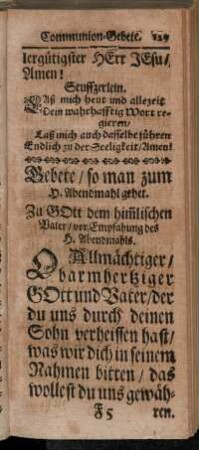 Communion-Gebete. 129
lergütigster HErr JEsu/
Amen!
Seuffzerlein.
Laß mich heut und allezeit
Dein wahrhafftig Wort re-
gieren/
Laß mich auch dasselbe führen
Endlich zu der Seeligkeit/Amen!
Gebete/ so man zum
H. Abendmahl gehet.
Zu GOtt dem him̃lischen
Vater/ vor Empfahung des
H. Abendmahls.
O Allmächtiger/
barmhertziger
GOtt und Vater/der
du uns durch deinen
Sohn verheissen hast/
was wir dich in seinem
Nahmen bitten/ das
wollest du uns gewäh-
F 5 ren.